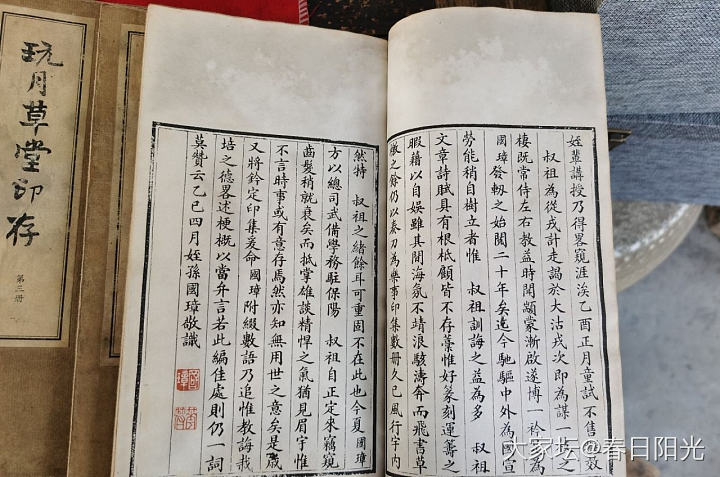 姪輩講授乃得畧窺涯涘乙酉正月童試不售投效
叔祖為從戎計走謁於大沽戎次即為謀一枝之
棲既常侍左右教益時聞顓蒙漸啟遂博一衿為
國璋發軔之始閱二十年矣迄今馳驅中外為國宣
勞能稍自樹立者惟 叔祖訓誨之益為多 叔祖
文章詩賦具有根柢顧皆不存藁惟好篆刻運籌之
暇藉以自娛雖其間海氛不靖浪駭濤奔而飛書草
檄之餘仍以奏刀為樂事印集數冊久已風行宇內
然特 叔祖之緒餘耳可重固不在此也今夏國璋
方以總司武備學務駐保陽 叔祖自正定來竊窺
齒髮稍就衰矣而抵掌雄談精悍之氣猶見眉宇惟
不言時事或有意存焉然亦知無用世之意矣是歲
又將鈐定印集爰命國璋附綴數語乃追惟教誨栽
培之德畧述梗概以當弁言若此編佳處則仍一詞
莫贊云乙巳四月姪孫國璋敬識
國璋
玩月草堂印存
第三冊
大家坛@春日阳光